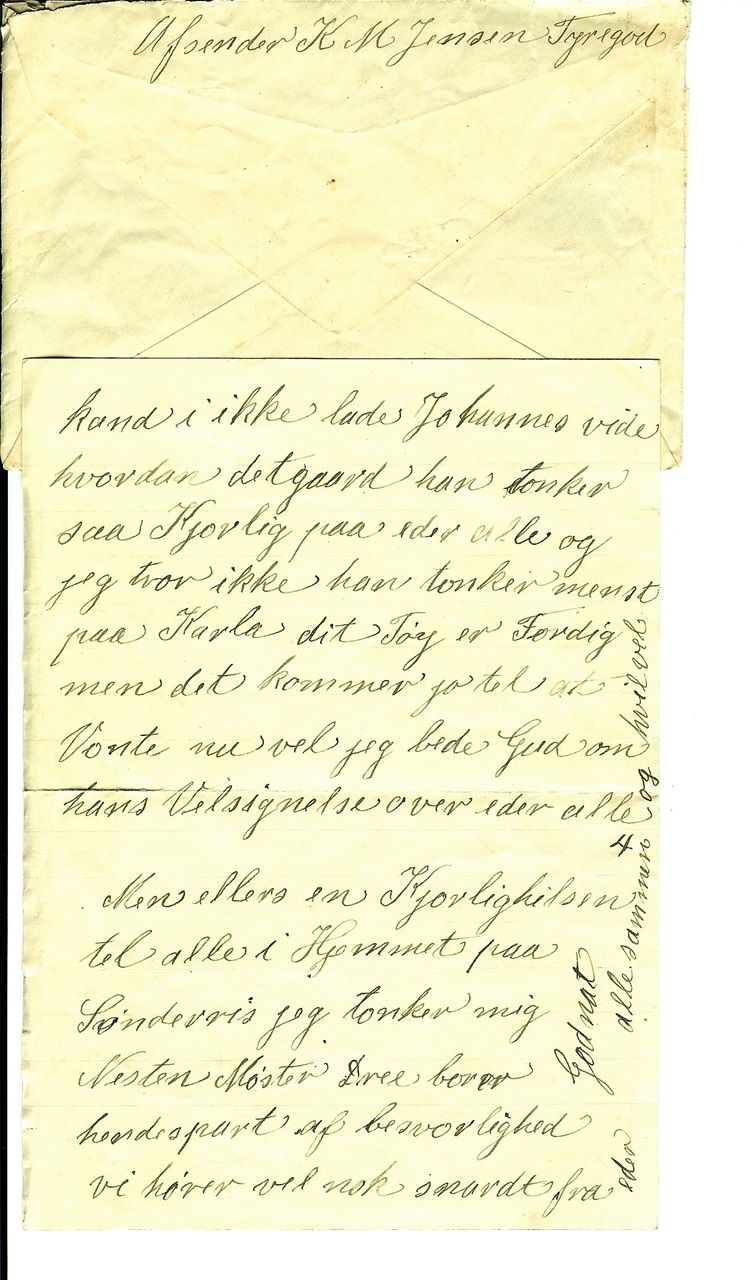 Afsender K M Jensen Tyregod
kand i ikke lade Johannes vide
hvordan det gaard han tonker
saa Kjorlig paa eder alle og
jeg tror ikke han tonker menst
paa Karla dit Töy er Fordig
men det kommer jo tel at
Vonte nu vel jeg bede Gud om
hans Velsignelse over eder alle
4
Men ellers en Kjorlighilsen
tel alle i Hjemmet paa
Sönderris jeg tonker mig
Nesten Möster Dree borer
hendespart af besvorlighed
vi hører vel nok snardt fra
eder
God nat
alle sammen og hvil vel